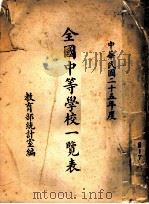 中華民國二十五年度
全國中等學校一覽表
教育部統計室編